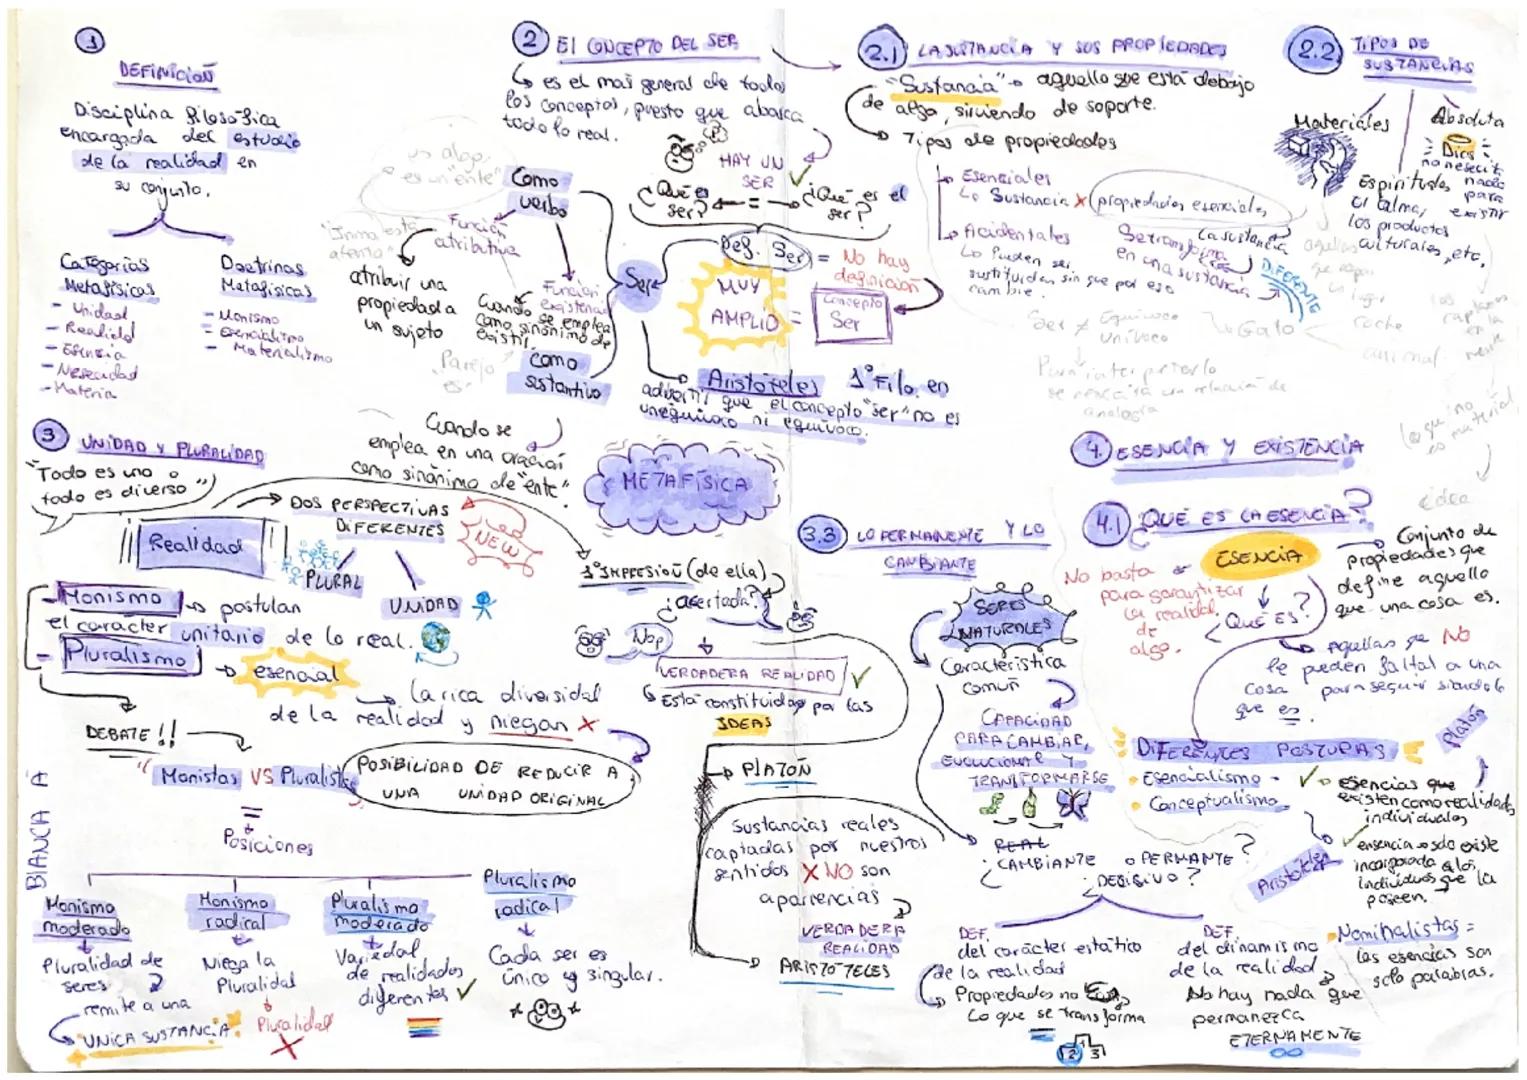 1
DEFINICIOÑ
Disciplina filosófica
encargada del estudio
de la realidad en
su conjunto.
Categorías
Metafísicas
- Unidad
- Realidad
- Esencia
- Nesecidad
- Materia
Doctrinas
Metafísicas
- Monismo
- Esencialismo
- Materialismo
2 El CONCEPTO DEL SER
es el mas general de todos
los conceptos, puesto que abarca
todo lo real.
HAY UN
SER
¿Qué es
ser?
=
¿Qué es el
ser?
Def. Ser = No hay
definición
MUY
AMPLIO =
Concepto
Ser
Ser
Como
verbo
Función
atributiva
atribuir una
propiedad a
un sujeto
Función
existencial
Cuando se emplea
como sinónimo de
existir.
como
sustantivo
Cuando se
emplea en una oración
como sinónimo de "ente".
Aristóteles 1º Filo. en
advertir que el concepto "ser" no es
unequivoco ni equivoco.
METAFÍSICA
2.1 LA SUSTANCIA Y SUS PROPIEDADES
"Sustancia" aquello que está debajo
de algo, sirviendo de soporte.
Tipos de propiedades
Esenciales
Sustancia X propiedades esenciales
Se transforma
en una sustancia
DIFERENTE
Accidentales
Pueden ser
sustituidas sin que por eso
cambie.
Ser ≠ Equivoco
Univoco
Para interpretarlo
se necesita una relación de
analogía
Gato
coche
animal
2.2 TIPOS DE
SUSTANCIAS
Materiales
Espirituales
El alma,
los productos
culturales, etc,
Absoluta
Dios
no nesecita
nada
para
existir
idea
3 UNIDAD Y PLURALIDAD
"Todo es uno o
todo es diverso"
Realidad
DOS PERSPECTIVAS
DIFERENTES
NEW
PLURAL
UNIDAD
Monismo postulan
el caracter unitario de lo real.
Pluralismo esencial
la rica diversidad
de la realidad y niegan X
POSIBILIDAD DE REDUCIR A
UNA UNIDAD ORIGINAL
DEBATE!!
Monistas VS Pluralistas
=
Posiciones
Monismo
moderado
Pluralidad de
seres
remite a una
UNICA SUSTANCIA
Monismo
radical
Niega la
Pluralidad
Pluralidad
X
Pluralismo
moderado
Variedad
de realidades
diferentes
Pluralismo
radical
Cada ser es
único y singular.
BIANCA A
1º IMPRESIOÑ (de ella)
¿acertada?
Nop
VERDADERA REALIDAD
Está constituida por las
IDEAS
PLATOÑ
Sustancias reales
captadas por nuestros
sentidos X NO son
apariencias
VERDADERA
REALIDAD
ARISTÓTELES
3.3 LO PERMANENTE Y LO
CAMBIANTE
SERES
NATURALES
Característica
comuñ
CAPACIDAD
PARA CAMBIAR,
EVOLUCIONAR Y
TRANSFORMARSE
REAL
¿CAMBIANTE o PERMANTE?
¿DECISIVO?
DEF.
del carácter estático
de la realidad
Propiedades no
Lo que se transforma
2 3
DEF.
del dinamismo
de la realidad
No hay nada que
permanezca
ETERNAMENTE
4. ESENCIA Y EXISTENCIA
4.1 QUÉ ES LA ESENCIA?
ESENCIA
No basta
para garantizar
la realidad
de
algo.
¿QUÉ ES?
Conjunto de
propiedades que
define aquello
que una cosa es.
Aquellas que NO
le pueden faltar a una
cosa para seguir siendo lo
que es.
DIFERENTES POSTURAS
Esencialismo
Conceptualismo
Platón
esencias que
existen como realidades
individuales
Aristóteles
esencia solo existe
incorporada a los
individuos que la
poseen.
Nominalistas =
las esencias son
solo palabras.